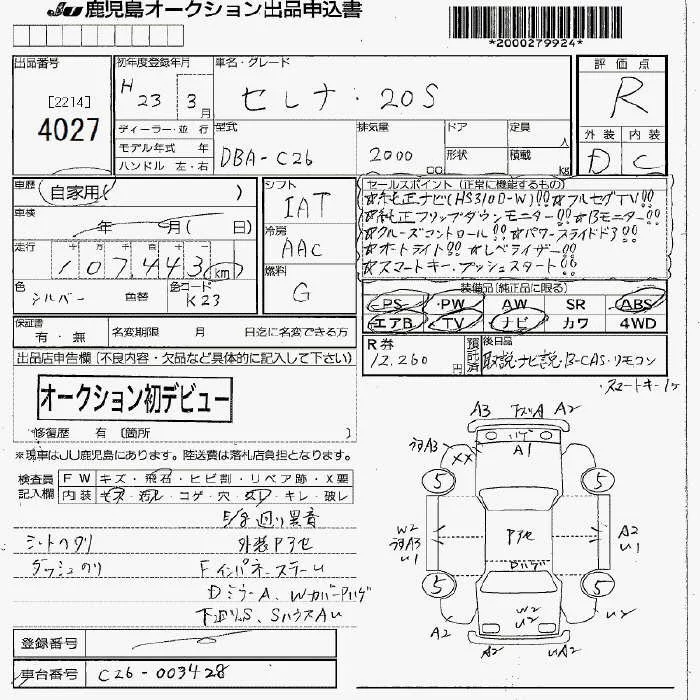 JU 鹿児島オークション出品申込書
*2000279924*
出品番号
[2214]
4027
初年度登録年月
H 23 3月
車名・グレード
セレナ・20S
評価点
R
外装 内装
D C
ディーラー・並行
モデル年式 年
ハンドル 左・右
型式
DBA-C26
排気量
2000
cc
ドア
形状
定員
人
積載
kg
車歴
自家用( )
車検
年 月( 日)
走行
十 万 千 百 十 一
107,443 km
色
シルバー 色替
色コード
K23
シフト
IAT
冷房
AAC
燃料
G
セールスポイント (正常に機能するもの)
☆純正ナビ(HS310D-W)!!☆フルセグTV!!
☆純正フリップダウンモニター!!☆Bモニター!!
☆クルーズコントロール!!☆パワースライドドア!!
☆オートライト!!☆レベライザー!!
☆スマートキー・プッシュスタート!!
装備品(純正品に限る)
PS PW AW SR ABS
エアB TV ナビ カワ 4WD
保証書
有・無
名変期限 月 日迄に名変できる方
R券
12,260円
預託済
後日品
取説・ナビ説・B-CAS・リモコン
・スマートキー1ヶ
出品店申告欄 (不良内容・欠品など具体的に記入して下さい)
オークション初デビュー
修復歴 有 〔箇所 〕
※現車はJU鹿児島にあります。陸送費は落札店負担となります。
検査員
記入欄
FW キズ・飛石・ヒビ割・リペア跡・X要
内装 キズ・汚れ・コゲ・穴・スレ・キレ・破レ
5/8 回り異音
シートヘタリ 外装Pアセ
ダッシュのり Fインパネ・ステーム
DミラーA、WカバーPハゲ
下回りS、SハウスAU
登録番号
車台番号 C26-003428
A3 下ズリA A2
ハゲ
A1
XX
5 5
W2
U1
Pアセ
A2
U1
5 5
W2
U2
A2 UA2
U2